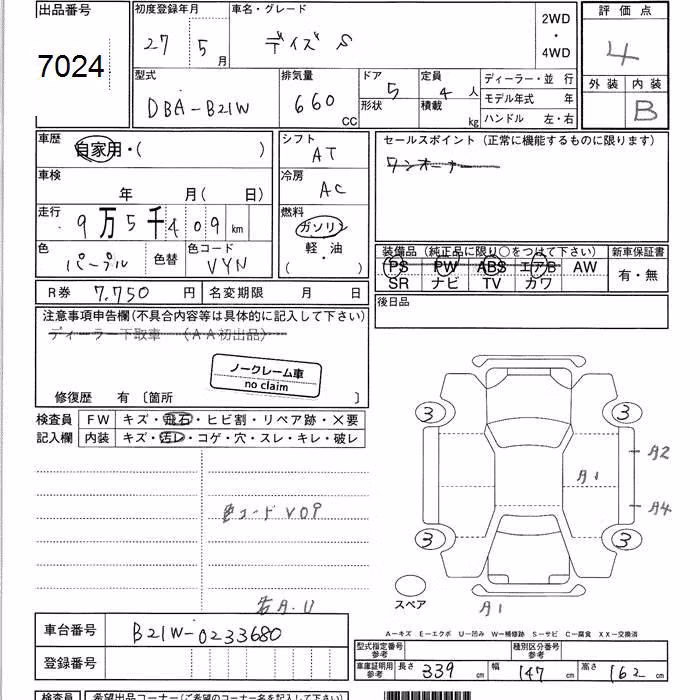 出品番号
7024
初度登録年月
27 5月
車名・グレード
デイズ S
2WD
・
4WD
評価点
4
型式
DBA-B21W
排気量
660 CC
ドア
5
形状
定員
4 人
積載
kg
ディーラー・並 行
モデル年式 年
ハンドル 左・右
外装 内装
B
車歴
自家用・( )
シフト
AT
セールスポイント (正常に機能するものに限ります)
ワンオーナー
車検
年 月( 日)
冷房
AC
走行
9万5千409km
燃料
ガソリン
軽・油
( )
色
パープル
色替
色コード
VYN
装備品 (純正品に限り○をつけて下さい)
新車保証書
PS PW ABS エアB AW
SR ナビ TV カワ
有・無
R券 7.750 円
名変期限 月 日
後日品
注意事項申告欄(不具合内容等は具体的に記入して下さい)
ディーラー下取車 (AA初出品)
ノークレーム車
no claim
修復歴 有 〔箇所 〕
検査員
記入欄
FW キズ・飛石・ヒビ割・リペア跡・×要
内装 キズ・汚レ・コゲ・穴・スレ・キレ・破レ
3 3
A2
A1
A4
色コード V09
3 3
スペア
A1
A・U
A－キズ E－エクボ U－凹み W－補修跡 S－サビ C－腐食 XX－交換済
車台番号 B21W-0233680
型式指定番号
参考
種別区分番号
参考
登録番号
車庫証明用
参考
長さ 339 cm
幅 147 cm
高さ 162 cm
検査員
希望出品コーナー(ご希望のコーナー名を記入して下さい)